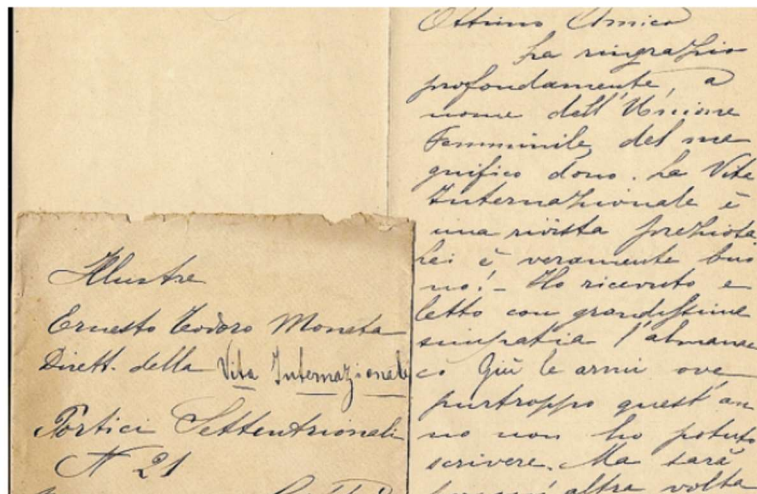 Illustre
Ernesto Teodoro Moneta
Dirett. della Vita Internazionale
Portici Settentrionali
N 21
Ottimo Amico
La ringrazio
profondamente, a
nome dell'Unione
Femminile, del ma
gnifico dono. La Vita
Internazionale è
una rivista preziosa
Lei è veramente buo
no! - Ho ricevuto e
letto con grandissima
simpatia l'almanac
co Giù le armi ove
purtroppo quest'an
no non ho potuto
scrivere. Ma sarà
altra volta